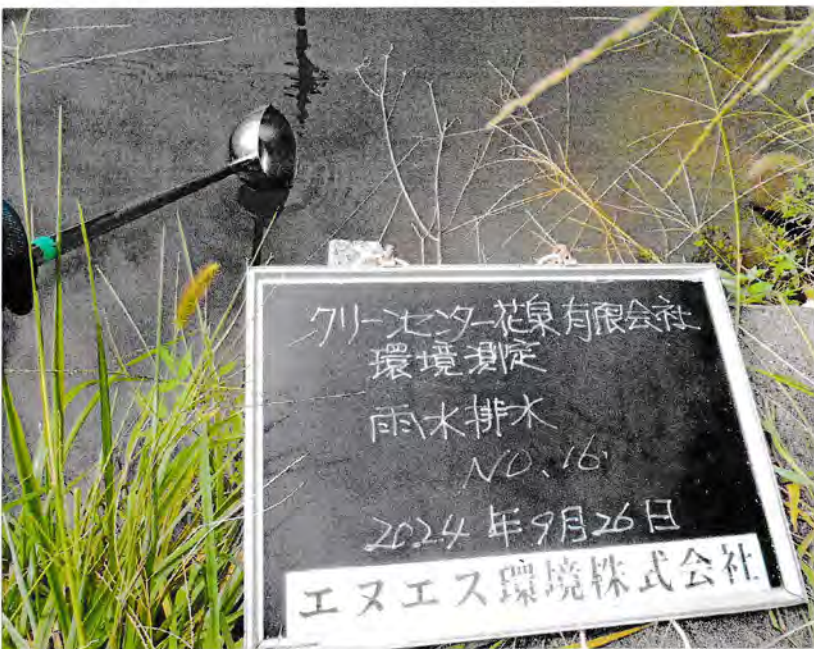 クリーンセンター花泉有限会社
環境測定
雨水排水
NO.16
2024年9月26日
エヌエス環境株式会社